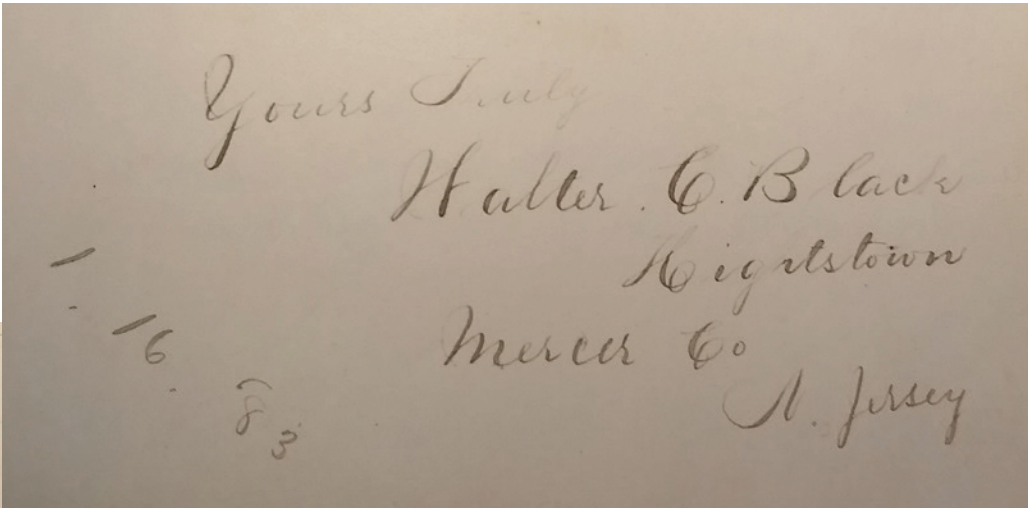 Yours Truly
Walter. C. Black
Hightstown
Mercer Co
N. Jersey
1-16-83